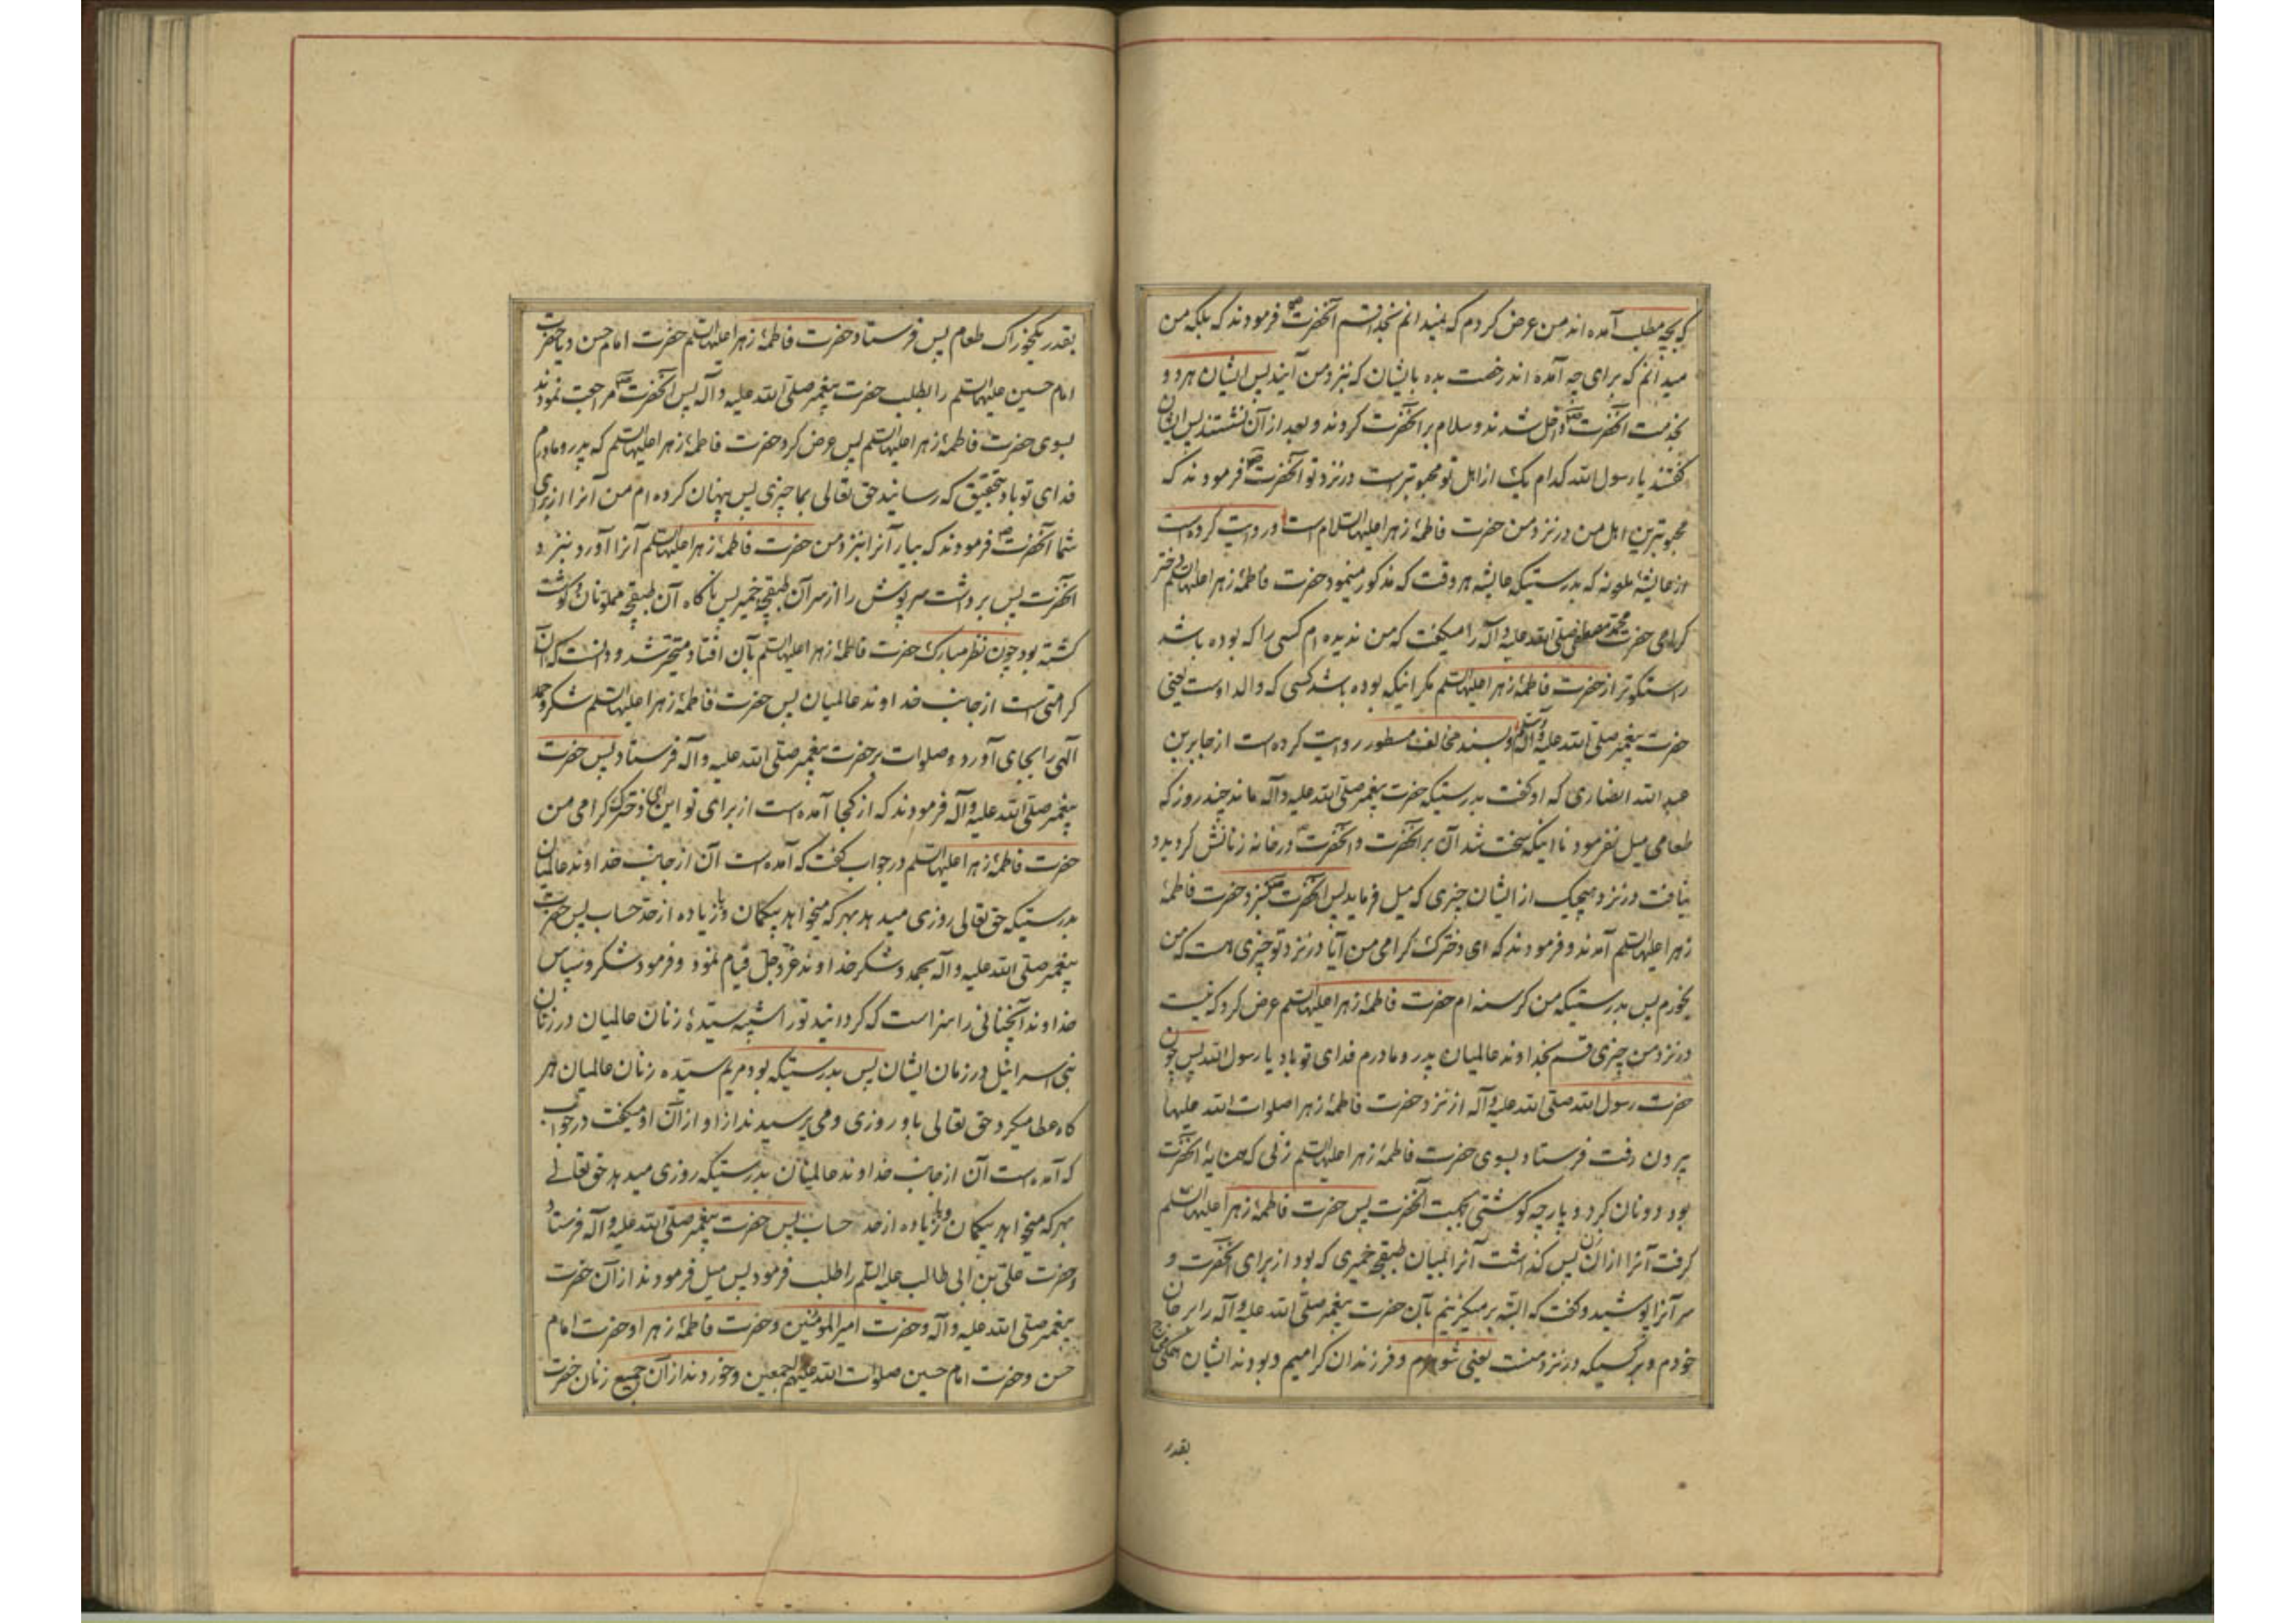 که بچه مطلب آمده اند من عرض کردم که نمیدانم بخدا قسم آنحضرت ص فرمودند که بلکه من
میدانم که برای چه آمده اند رخصت بده بایشان که بنزد من آیند پس ایشان هر دو
بخدمت آنحضرت ص داخل شدند و سلام بر آنحضرت کردند و بعد از آن نشستند پس ایشان
گفتند یا رسول الله کدام یک از اهل تو محبوبتر است در نزد تو آنحضرت ص فرمودند که
محبوبترین اهل من در نزد من حضرت فاطمهٔ زهرا علیها السلام است و روایت کرده است
از عایشهٔ ملعونه که بدرستیکه عایشه هر وقت که مذکور مینمود حضرت فاطمهٔ زهرا علیها السلم دختر
گرامی حضرت محمد مصطفی صلی الله علیه وآله را میگفت که من ندیده ام کسی را که بوده باشد
راستگوتر از حضرت فاطمهٔ زهرا علیها السلم مگر اینکه بوده باشد کسی که والد اوست یعنی
حضرت پیغمبر صلی الله علیه وآله وسلم و بسند مخالف مسطور روایت کرده است از جابر بن
عبد الله انصاری که او گفت بدرستیکه حضرت پیغمبر صلی الله علیه وآله ماند چند روز که
طعامی میل نفرمود تا اینکه سخت شد آن بر آنحضرت و آنحضرت در خانه زنانش گردید و
نیافت در نزد هیچیک از ایشان چیزی که میل فرماید پس آنحضرت ص بنزد حضرت فاطمهٔ
زهرا علیها السلم آمدند و فرمودند که ای دخترک گرامی من آیا در نزد تو چیزی هست که من
بخورم پس بدرستیکه من گرسنه ام حضرت فاطمهٔ زهرا علیها السلم عرض کرد که نیست
در نزد من چیزی قسم بخداوند عالمیان پدر و مادرم فدای تو باد یا رسول الله پس چون
حضرت رسول الله صلی الله علیه وآله از نزد حضرت فاطمهٔ زهرا صلوات الله علیها
بیرون رفت فرستاد بسوی حضرت فاطمهٔ زهرا علیها السلم زنی که همسایهٔ آنحضرت
بود دو نان گرد و پارچه گوشتی بجهت آنحضرت پس حضرت فاطمهٔ زهرا علیها السلم
گرفت آنرا از آن زن پس گذاشت آنرا بمیان طبقچهٔ خمیری که بود از برای آنحضرت و
سر آنرا پوشید و گفت که البته برمیگزینم بآن حضرت پیغمبر صلی الله علیه وآله را بر جان
خودم و بر کسیکه در نزد منست یعنی شوهرم و فرزندان گرامیم و بودند ایشان همگی محتاج
بقدر
بقدر یکخوراک طعام پس فرستاد حضرت فاطمهٔ زهرا علیها السلم حضرت امام حسن و یا حضرت
امام حسین علیهما السلم را بطلب حضرت پیغمبر صلی الله علیه وآله پس آنحضرت ص مراجعت نمودند
بسوی حضرت فاطمهٔ زهرا علیها السلم پس عرض کرد حضرت فاطمهٔ زهرا علیها السلم که پدر و مادرم
فدای تو باد بتحقیق که رسانید حق تعالی بما چیزی پس پنهان کرده ام من آنرا از برای
شما آنحضرت ص فرمودند که بیار آنرا بنزد من حضرت فاطمهٔ زهرا علیها السلم آنرا آورد بنزد
آنحضرت پس برداشت سرپوش را از سر آن طبقچهٔ خمیر پس ناگاه آن طبقچه مملو نان و گوشت
گشته بود چون نظر مبارک حضرت فاطمهٔ زهرا علیها السلم بآن افتاد متحیر شد و دانست که آن
کرامتی است از جانب خداوند عالمیان پس حضرت فاطمهٔ زهرا علیها السلم شکر و حمد
الهی را بجای آورد و صلوات بر حضرت پیغمبر صلی الله علیه وآله فرستاد پس حضرت
پیغمبر صلی الله علیه وآله فرمودند که از کجا آمده است از برای تو این ای دخترک گرامی من
حضرت فاطمهٔ زهرا علیها السلم در جواب گفت که آمده است آن از جانب خداوند عالمیان
بدرستیکه حق تعالی روزی میدهد بهر که میخواهد بیگمان و یا زیاده از حد حساب پس حضرت
پیغمبر صلی الله علیه وآله بحمد و شکر خداوند عز و جل قیام نمود و فرمود شکر و سپاس
خداوند آنچنانی را سزاست که گردانید تو را شبیه سیدهٔ زنان عالمیان در زنان
بنی اسرائیل در زمان ایشان پس بدرستیکه بود مریم سیده زنان عالمیان هر
گاه عطا میکرد حق تعالی باو روزی و می پرسیدند از او از آن او میگفت در جواب
که آمده است آن از جانب خداوند عالمیان بدرستیکه روزی میدهد حق تعالی
بهر که میخواهد بیگمان و یا زیاده از حد حساب پس حضرت پیغمبر صلی الله علیه وآله فرستاد
و حضرت علی بن ابی طالب علیه السلم را طلب فرمود پس میل فرمودند از آن حضرت
پیغمبر صلی الله علیه وآله و حضرت امیر المؤمنین و حضرت فاطمهٔ زهرا و حضرت امام
حسن و حضرت امام حسین صلوات الله علیهم اجمعین و خوردند از آن جمیع زنان حضرت